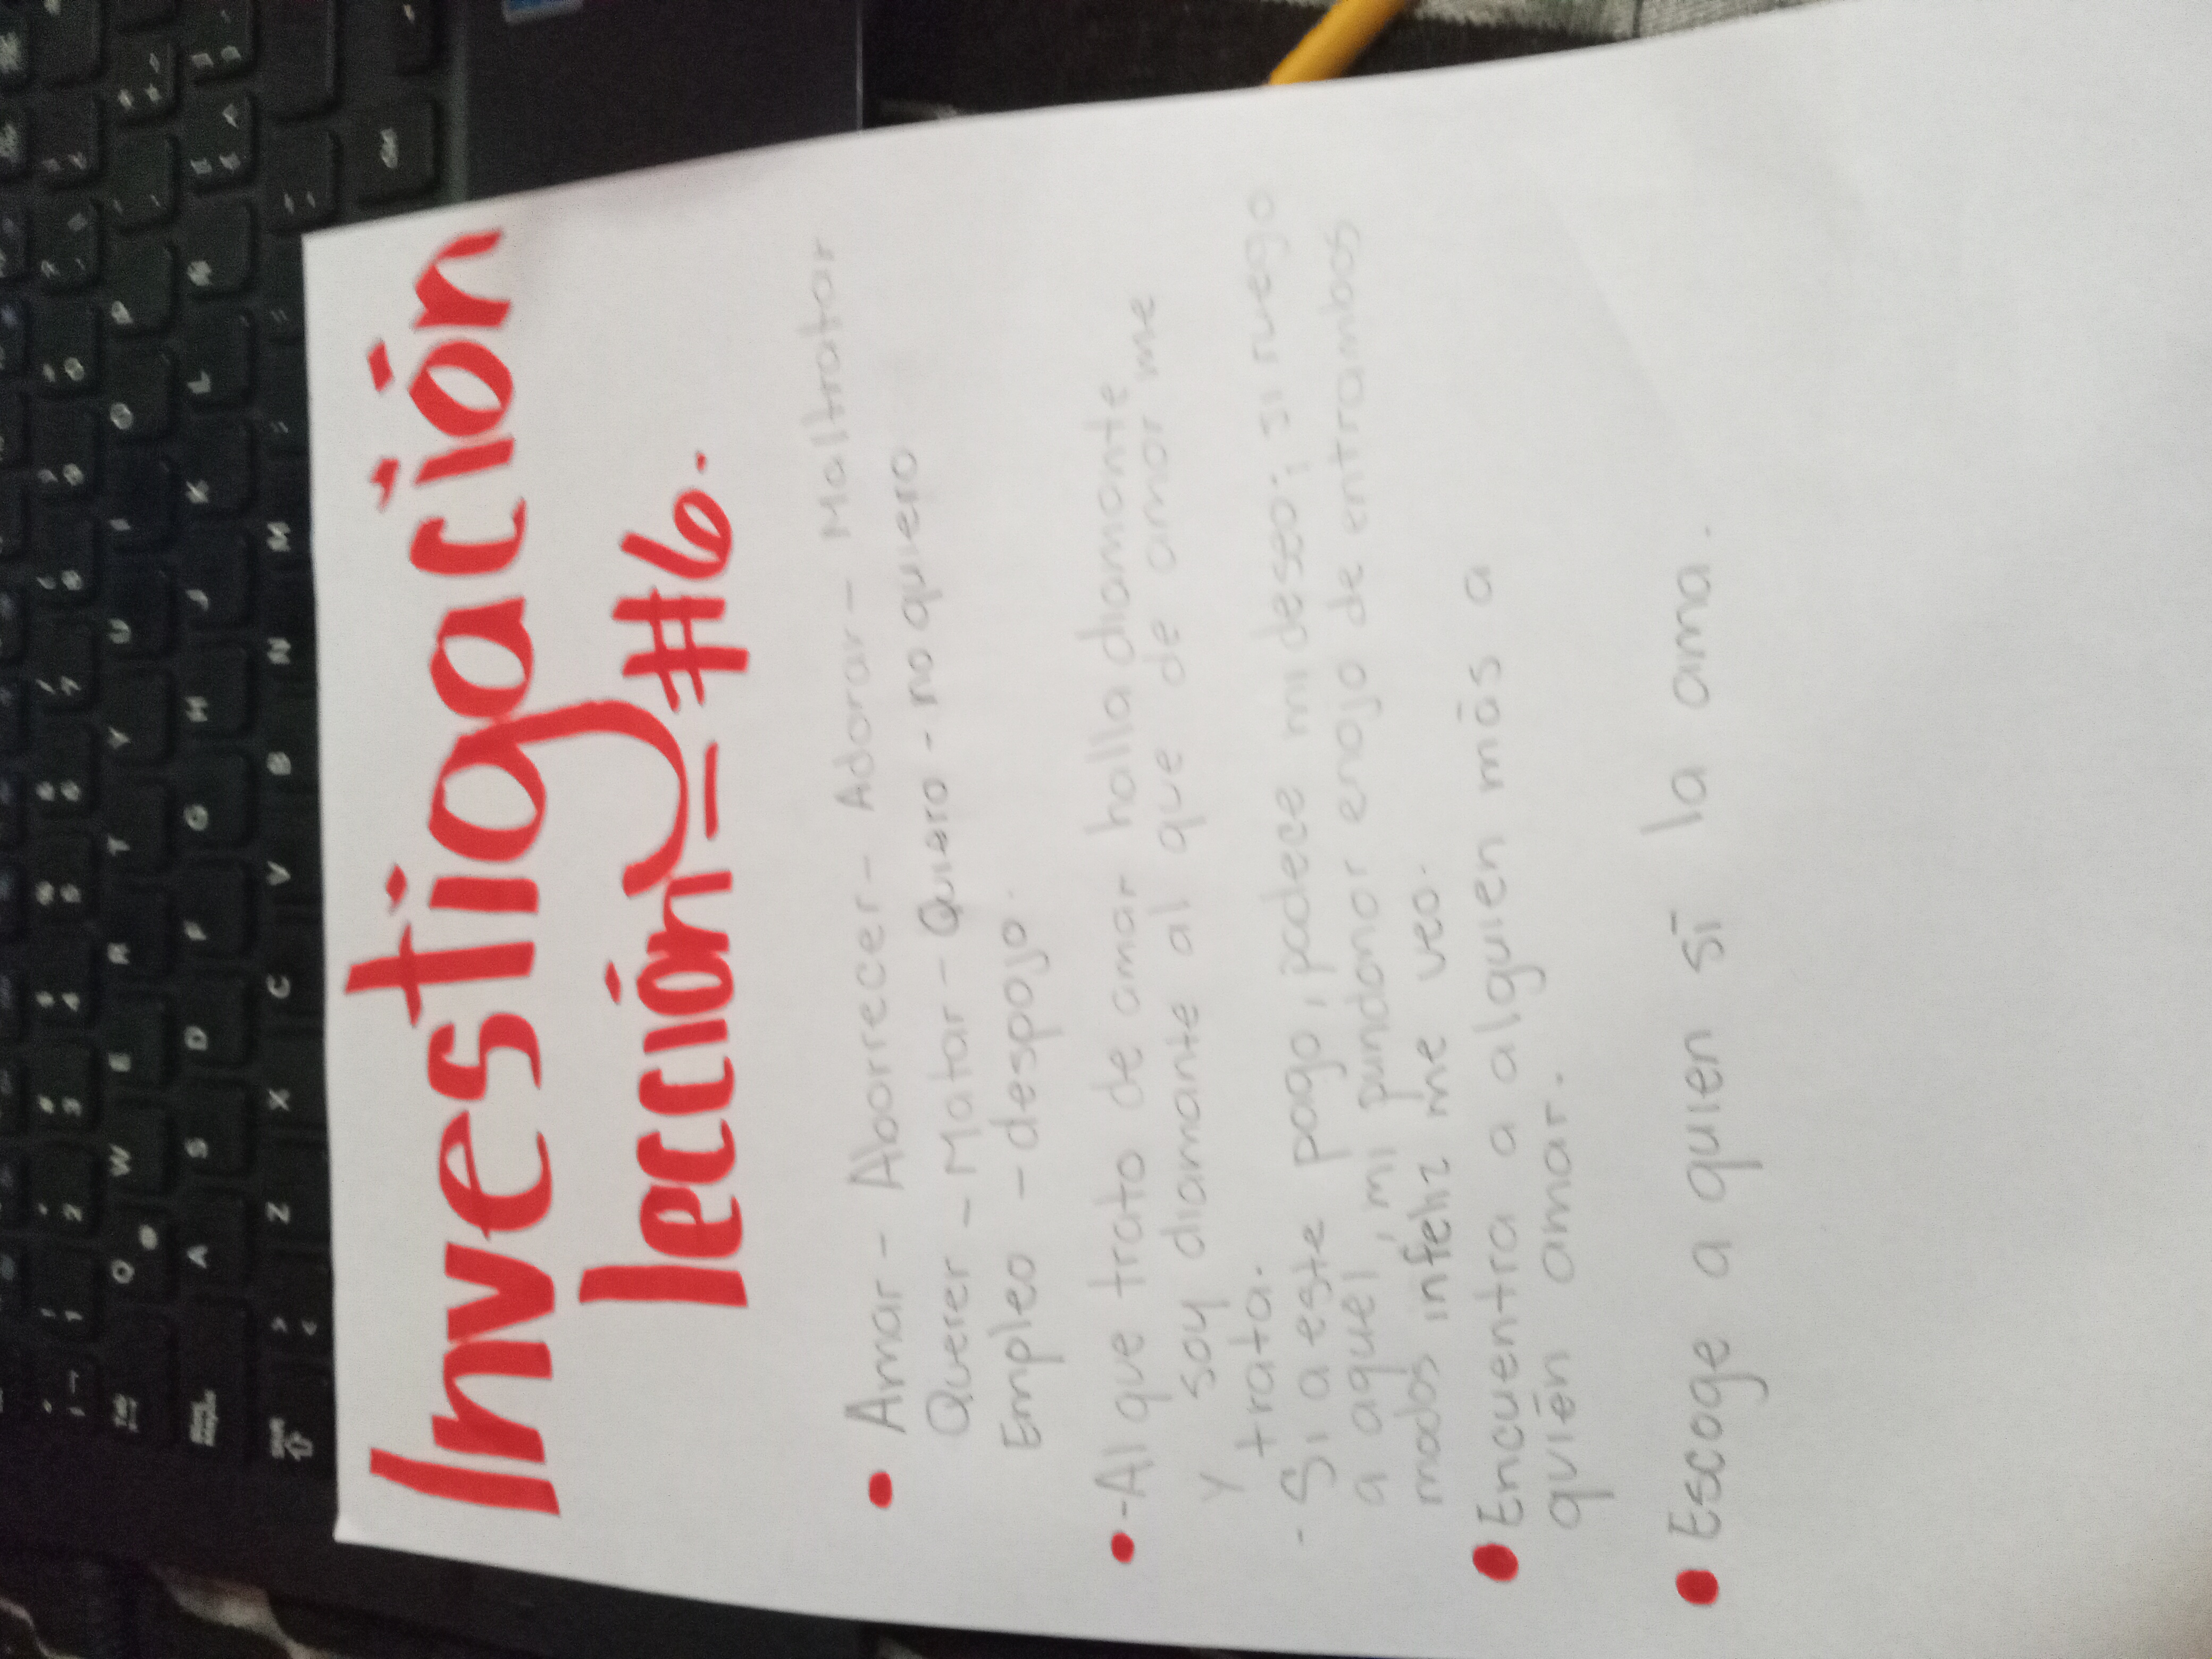 Investigación
lección - #6.
Amar - Aborrecer - Adorar - Malltratar
Querer - Matar - Quiero - no quiero
Empleo - despojo.
- Al que trato de amar hallo diamante
y soy diamante al que de amor me
trata.
- Si a este pago, padece mi deseo; si ruego
a aquel, mi pundonor enojo de entrambos
modos infeliz me veo.
Encuentra a alguien más a
quién amar.
Escoge a quien sí la ama.